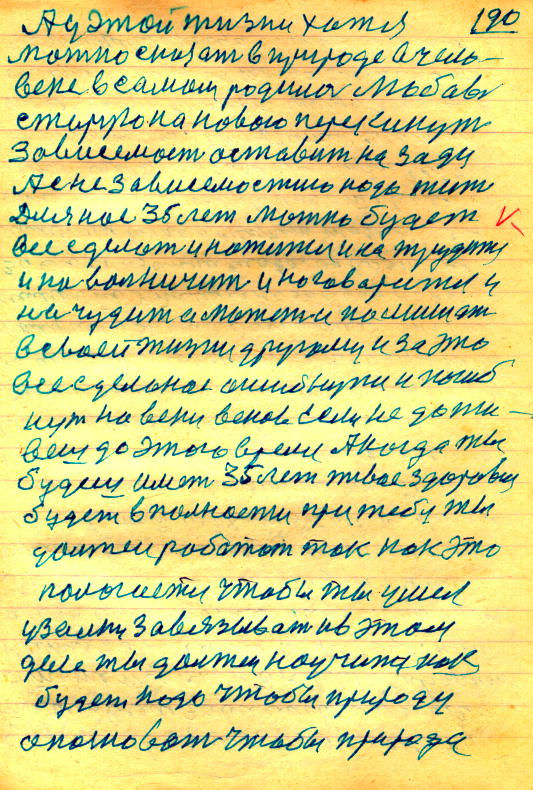 190
А у этой жизни хотя
можно сказат в природе а чело-
веке в самом родится любав
старую на новою перекинут
Зависемост оставит на зади
А с не зависемостию надо жит
Длячное 35 лет можно будет
все сделат и нажится и на трудится
и на валничит и наговорится и
на чудит а может и помишат
в своей жизни другому и за это
все сделоное ошибнутся и погиб
нут на веки веков если не дажи-
веш до этого время А когда ты
будеш имет 35 лет твое здоровия
будет в полности при тебе ты
должен работат так как это
полагается чтобы ты умел
узелки завязыват в этом
деле ты должен научится как
будет надо чтобы природу
опознават чтобы природа